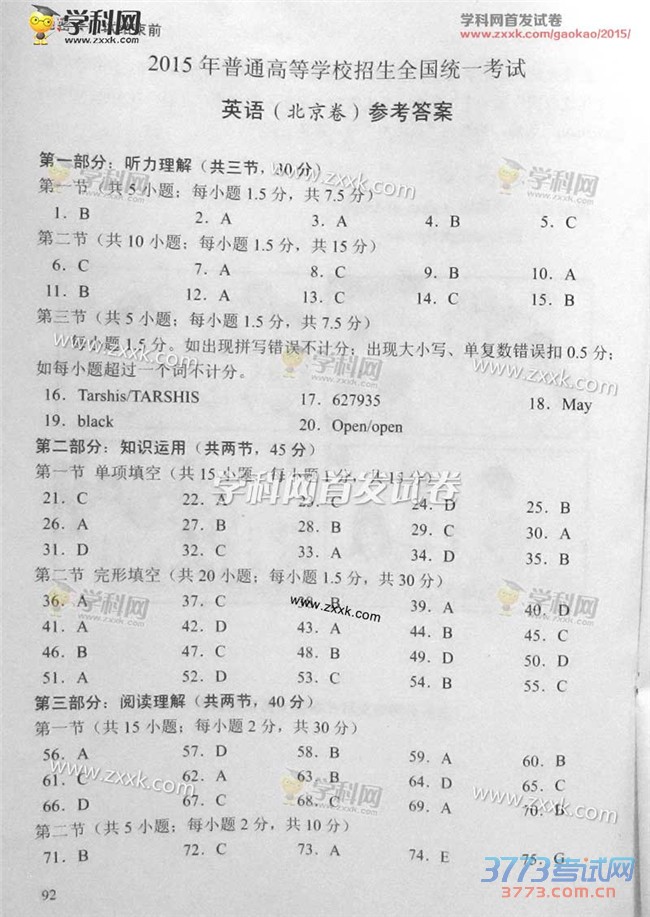 学科网
www.zxxk.com
束前
学科网首发试卷
www.zxxk.com/gaokao/2015/
2015 年普通高等学校招生全国统一考试
英语（北京卷）参考答案
第一部分：听力理解（共三节，30 分）
第一节（共 5 小题；每小题 1.5 分，共 7.5 分）
1. B 2. A 3. A 4. B 5. C
第二节（共 10 小题；每小题 1.5 分，共 15 分）
6. C 7. A 8. C 9. B 10. A
11. B 12. A 13. C 14. C 15. B
第三节（共 5 小题；每小题 1.5 分，共 7.5 分）
每小题 1.5 分。如出现拼写错误不计分；出现大小写、单复数错误扣 0.5 分；
如每小题超过一个词不计分。
16. Tarshis/TARSHIS 17. 627935 18. May
19. black 20. Open/open
第二部分：知识运用（共两节，45 分）
第一节 单项填空（共 15 小题；每小题 1 分，共 15 分）
21. C 22. A 23. C 24. D 25. B
26. A 27. B 28. B 29. C 30. A
31. D 32. C 33. A 34. D 35. B
学科网首发试卷
第二节 完形填空（共 20 小题；每小题 1.5 分，共 30 分）
36. A 37. C 38. B 39. A 40. D
41. A 42. D 43. A 44. B 45. C
46. B 47. C 48. B 49. D 50. D
51. A 52. D 53. C 54. B 55. C
第三部分：阅读理解（共两节，40 分）
第一节（共 15 小题；每小题 2 分，共 30 分）
56. A 57. D 58. B 59. A 60. B
61. C 62. B 63. A 64. D 65. C
66. D 67. C 68. C 69. A 70. B
第二节（共 5 小题；每小题 2 分，共 10 分）
71. B 72. C 73. A 74. E 75. G
92
3773考试网
3773.com.cn